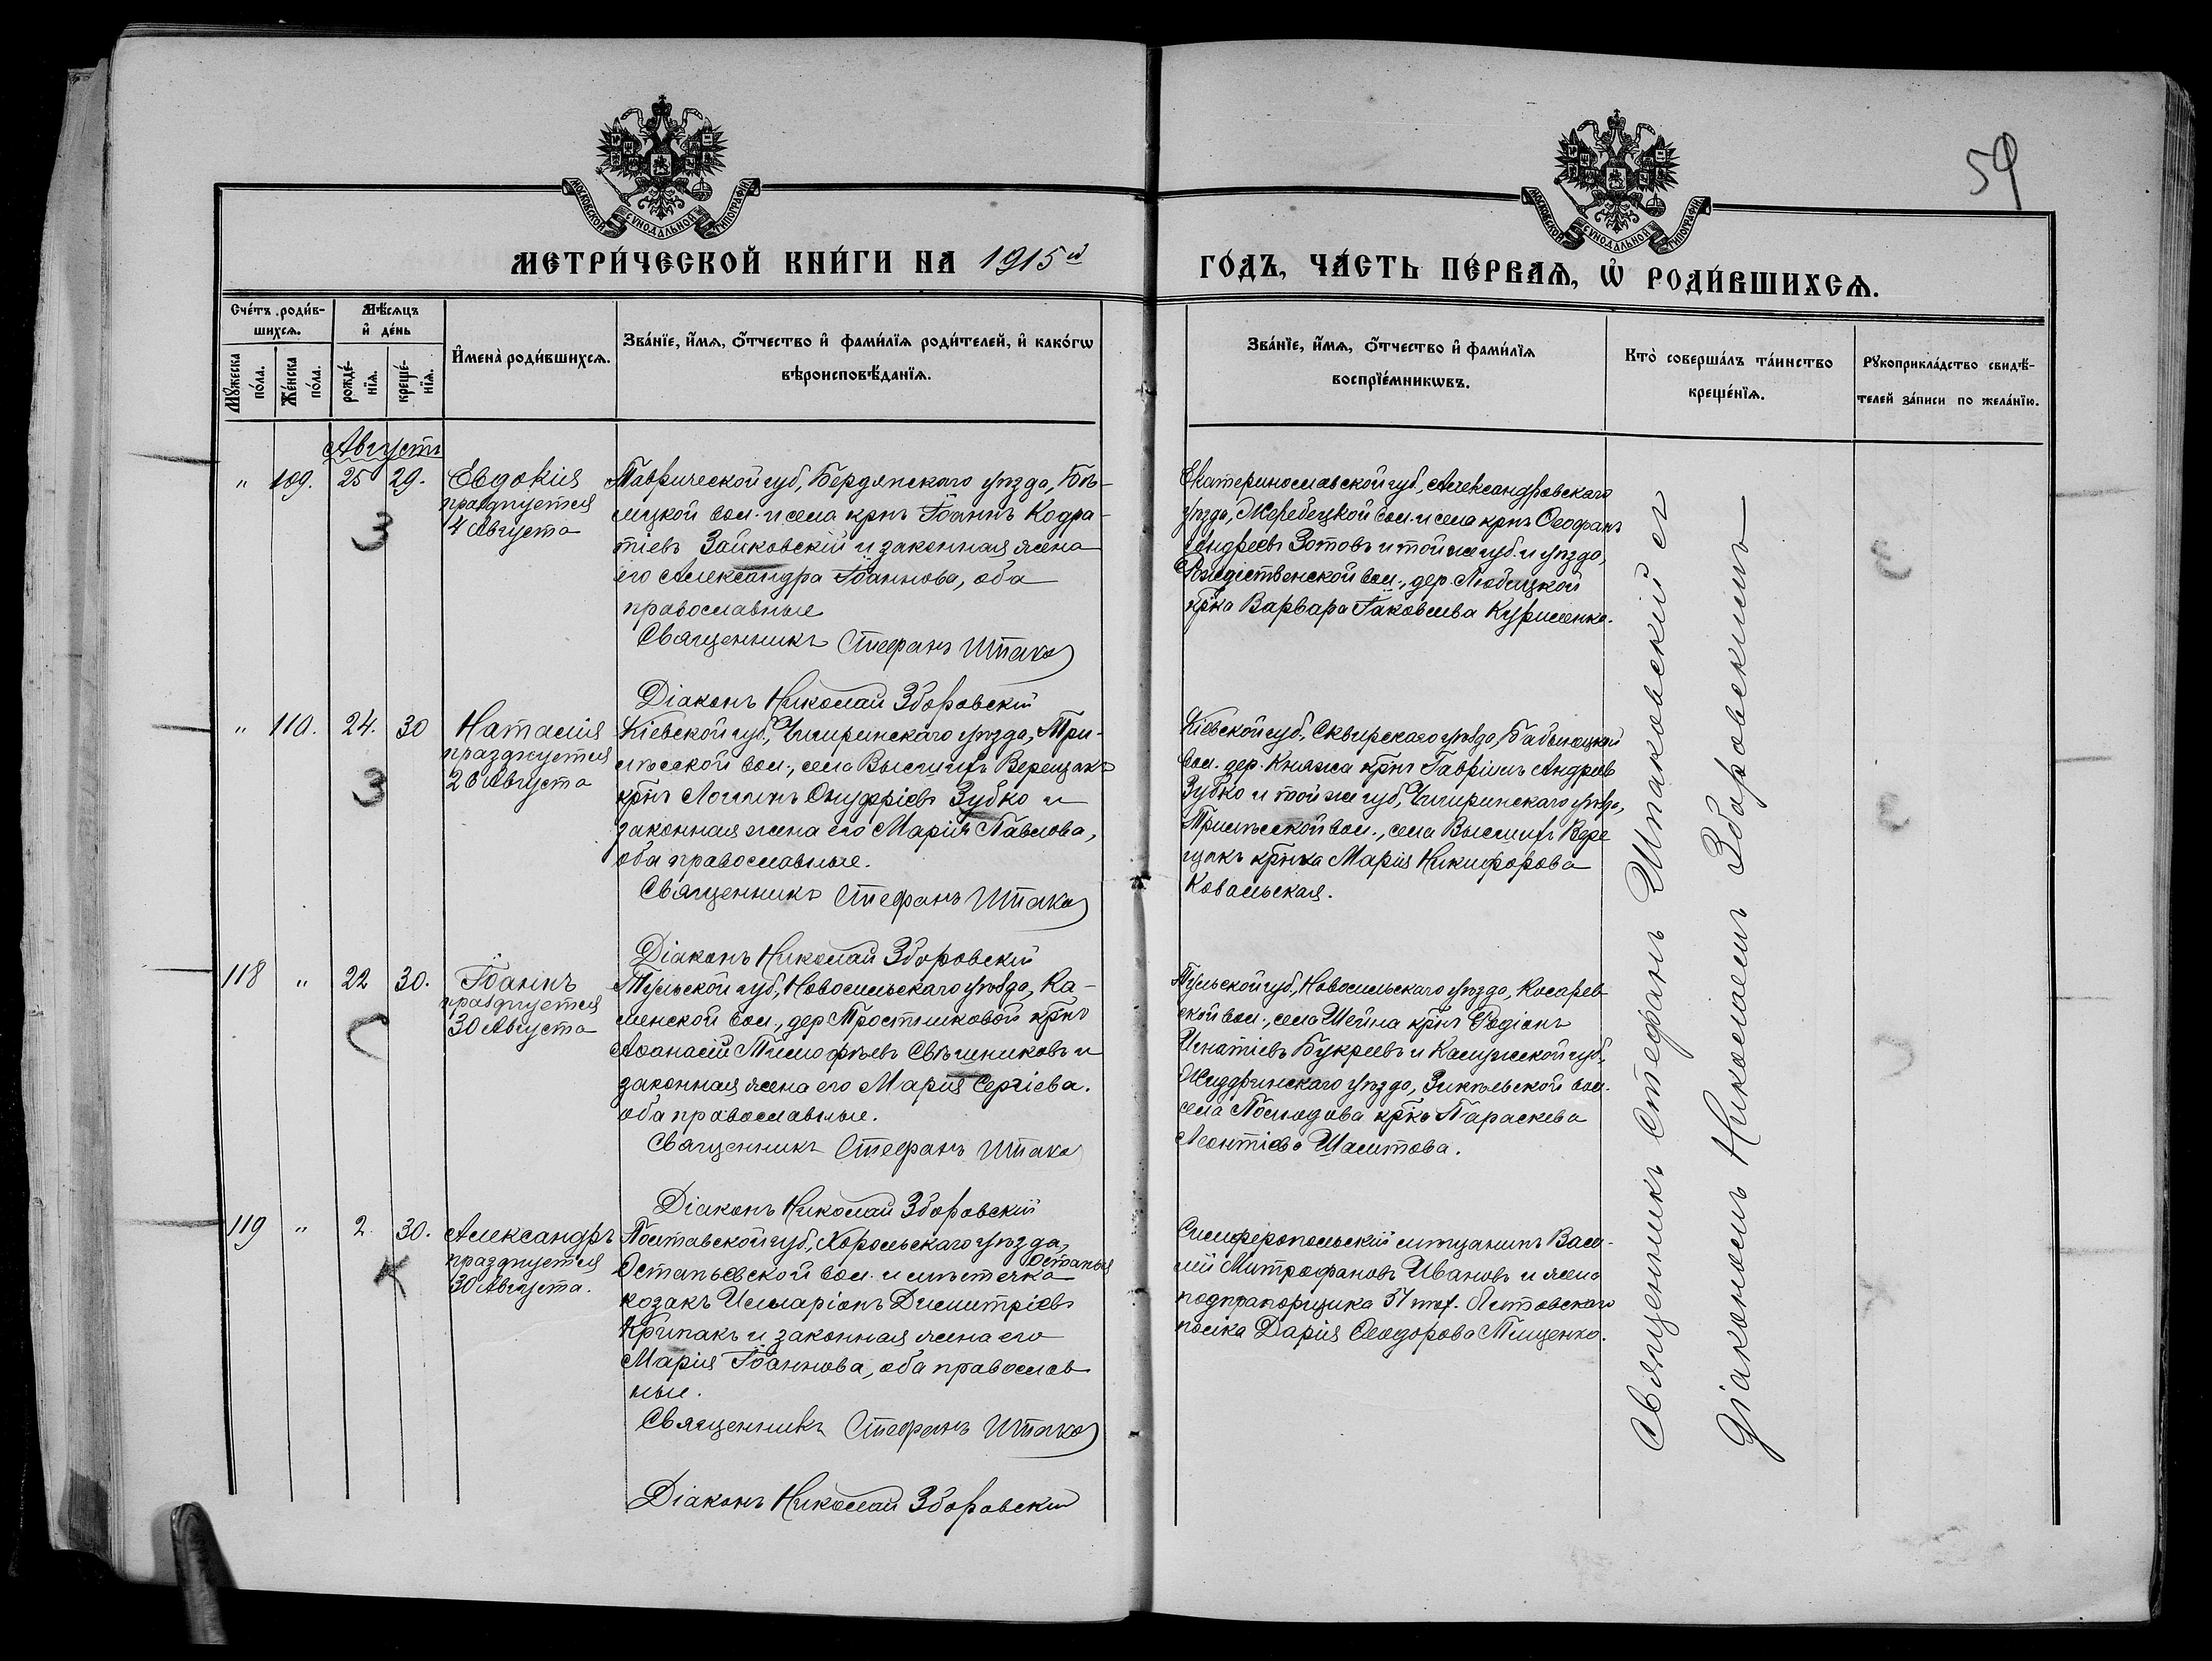 59
МОСКОВСКОЙ СУНОДАЛЬНОЙ ТИПОГРАФІИ
МОСКОВСКОЙ СУНОДАЛЬНОЙ ТИПОГРАФІИ
МЕТРИ́ЧЕСКОЙ КНИ́ГИ НА 1915й
ГО́ДЪ, ЧА́СТЬ ПЕ́РВАѦ, Ѡ҆ РОДИ́ВШИХСѦ.
Сче́тъ роди́в-
шихсѧ.
Мꙋ́жеска по́ла.
Же́нска по́ла.
Мѣ́сѧцъ
и҆ де́нь
рожде́-
нїѧ.
креще́-
нїѧ.
И҆мена̀ роди́вшихсѧ.
Зва́нїе, и҆́мѧ, ѻ҆́тчество и҆ фами́лїѧ роди́телей, и҆ како́гѡ
вѣроисповѣ́данїѧ.
Зва́нїе, и҆́мѧ, ѻ҆́тчество и҆ фами́лїѧ
воспрїе́мникѡвъ.
Кто̀ соверша́лъ та́инство
креще́нїѧ.
Рꙋкоприкла́дство свидѣ́-
телей за́писи по жела́нїю.
Августъ
" 109. 25 29. Евдокія
празднуется
4 Августа
З
Таврической губ., Бердянскаго уѣзда,
лицкой вол. и села крнъ Іоаннъ Кодра-
тіевъ Зайковскій и законная жена
его Александра Іоаннова, оба
православные
Священникъ Стефанъ Шпако
Діаконъ Николай Зборовскій
Екатеринославской губ., Александровскаго
уѣзда, Жеребецкой вол. и села крнъ Ѳеофанъ
Андреевъ Зотовъ и той же губ. и уѣзда,
Рождественской вол., дер. Любицкой
крка Варвара Іаковлева Куриленко.
" 110. 24. 30 Наталія
празднуется
26 Августа
З
Кіевской губ., Чигиринскаго уѣзда, Три-
лѣсской вол., села Высшихъ Верещакъ
крнъ Логгинъ Онуфріевъ Зубко и
законная жена его Марія Павлова,
оба православные.
Священникъ Стефанъ Шпако
Діаконъ Николай Зборовскій
Кіевской губ., Сквирскаго уѣзда,
вол. дер. Княжа крнъ Гавріилъ Андреев
Зубко и той же губ., Чигиринскаго уѣзда,
Трилѣсской вол., села Высшихъ Вере
щакъ крнка Марія Никифорова
Ковальская.
118 " 22 30. Іоаннъ
празднуется
30 Августа
С
Тульской губ., Новосильскаго уѣзда, Ка-
менской вол., дер Тростниковой крнъ
Аѳанасій Тимофѣевъ Свѣшниковъ и
законная жена его Марія Сергіева.
оба православные.
Священникъ Стефанъ Шпако
Діаконъ Николай Зборовскій
Тульской губ., Новосильскаго уѣзда, Косарев
ской вол., села Шейна крнъ Родіонъ
Игнатіевъ Букреевъ и Калужской губ.,
Жиздринскаго уѣзда, Зикѣевской вол.
села крка Параскева
Леонтіева
119 " 2. 30. Александръ
празднуется
30 Августа.
К
Полтавской губ., Хорольскаго уѣзда,
Остапьевской вол. и мѣстечка Остапья
козакъ Илларіонъ Димитріевъ
Крипакъ и законная жена его
Марія Іоаннова, оба православ
ные.
Священникъ Стефанъ Шпако
Діаконъ Николай Зборовскій
Симферопольскій мѣщанинъ Васи-
лій Митрофановъ Ивановъ и жена
подпрапорщика Литовскаго
полка Дарія Ѳеодорова Тищенко.
Священникъ Стефанъ Шпаковскій съ
діакономъ Николаемъ Зборовскимъ
З
З
С
К